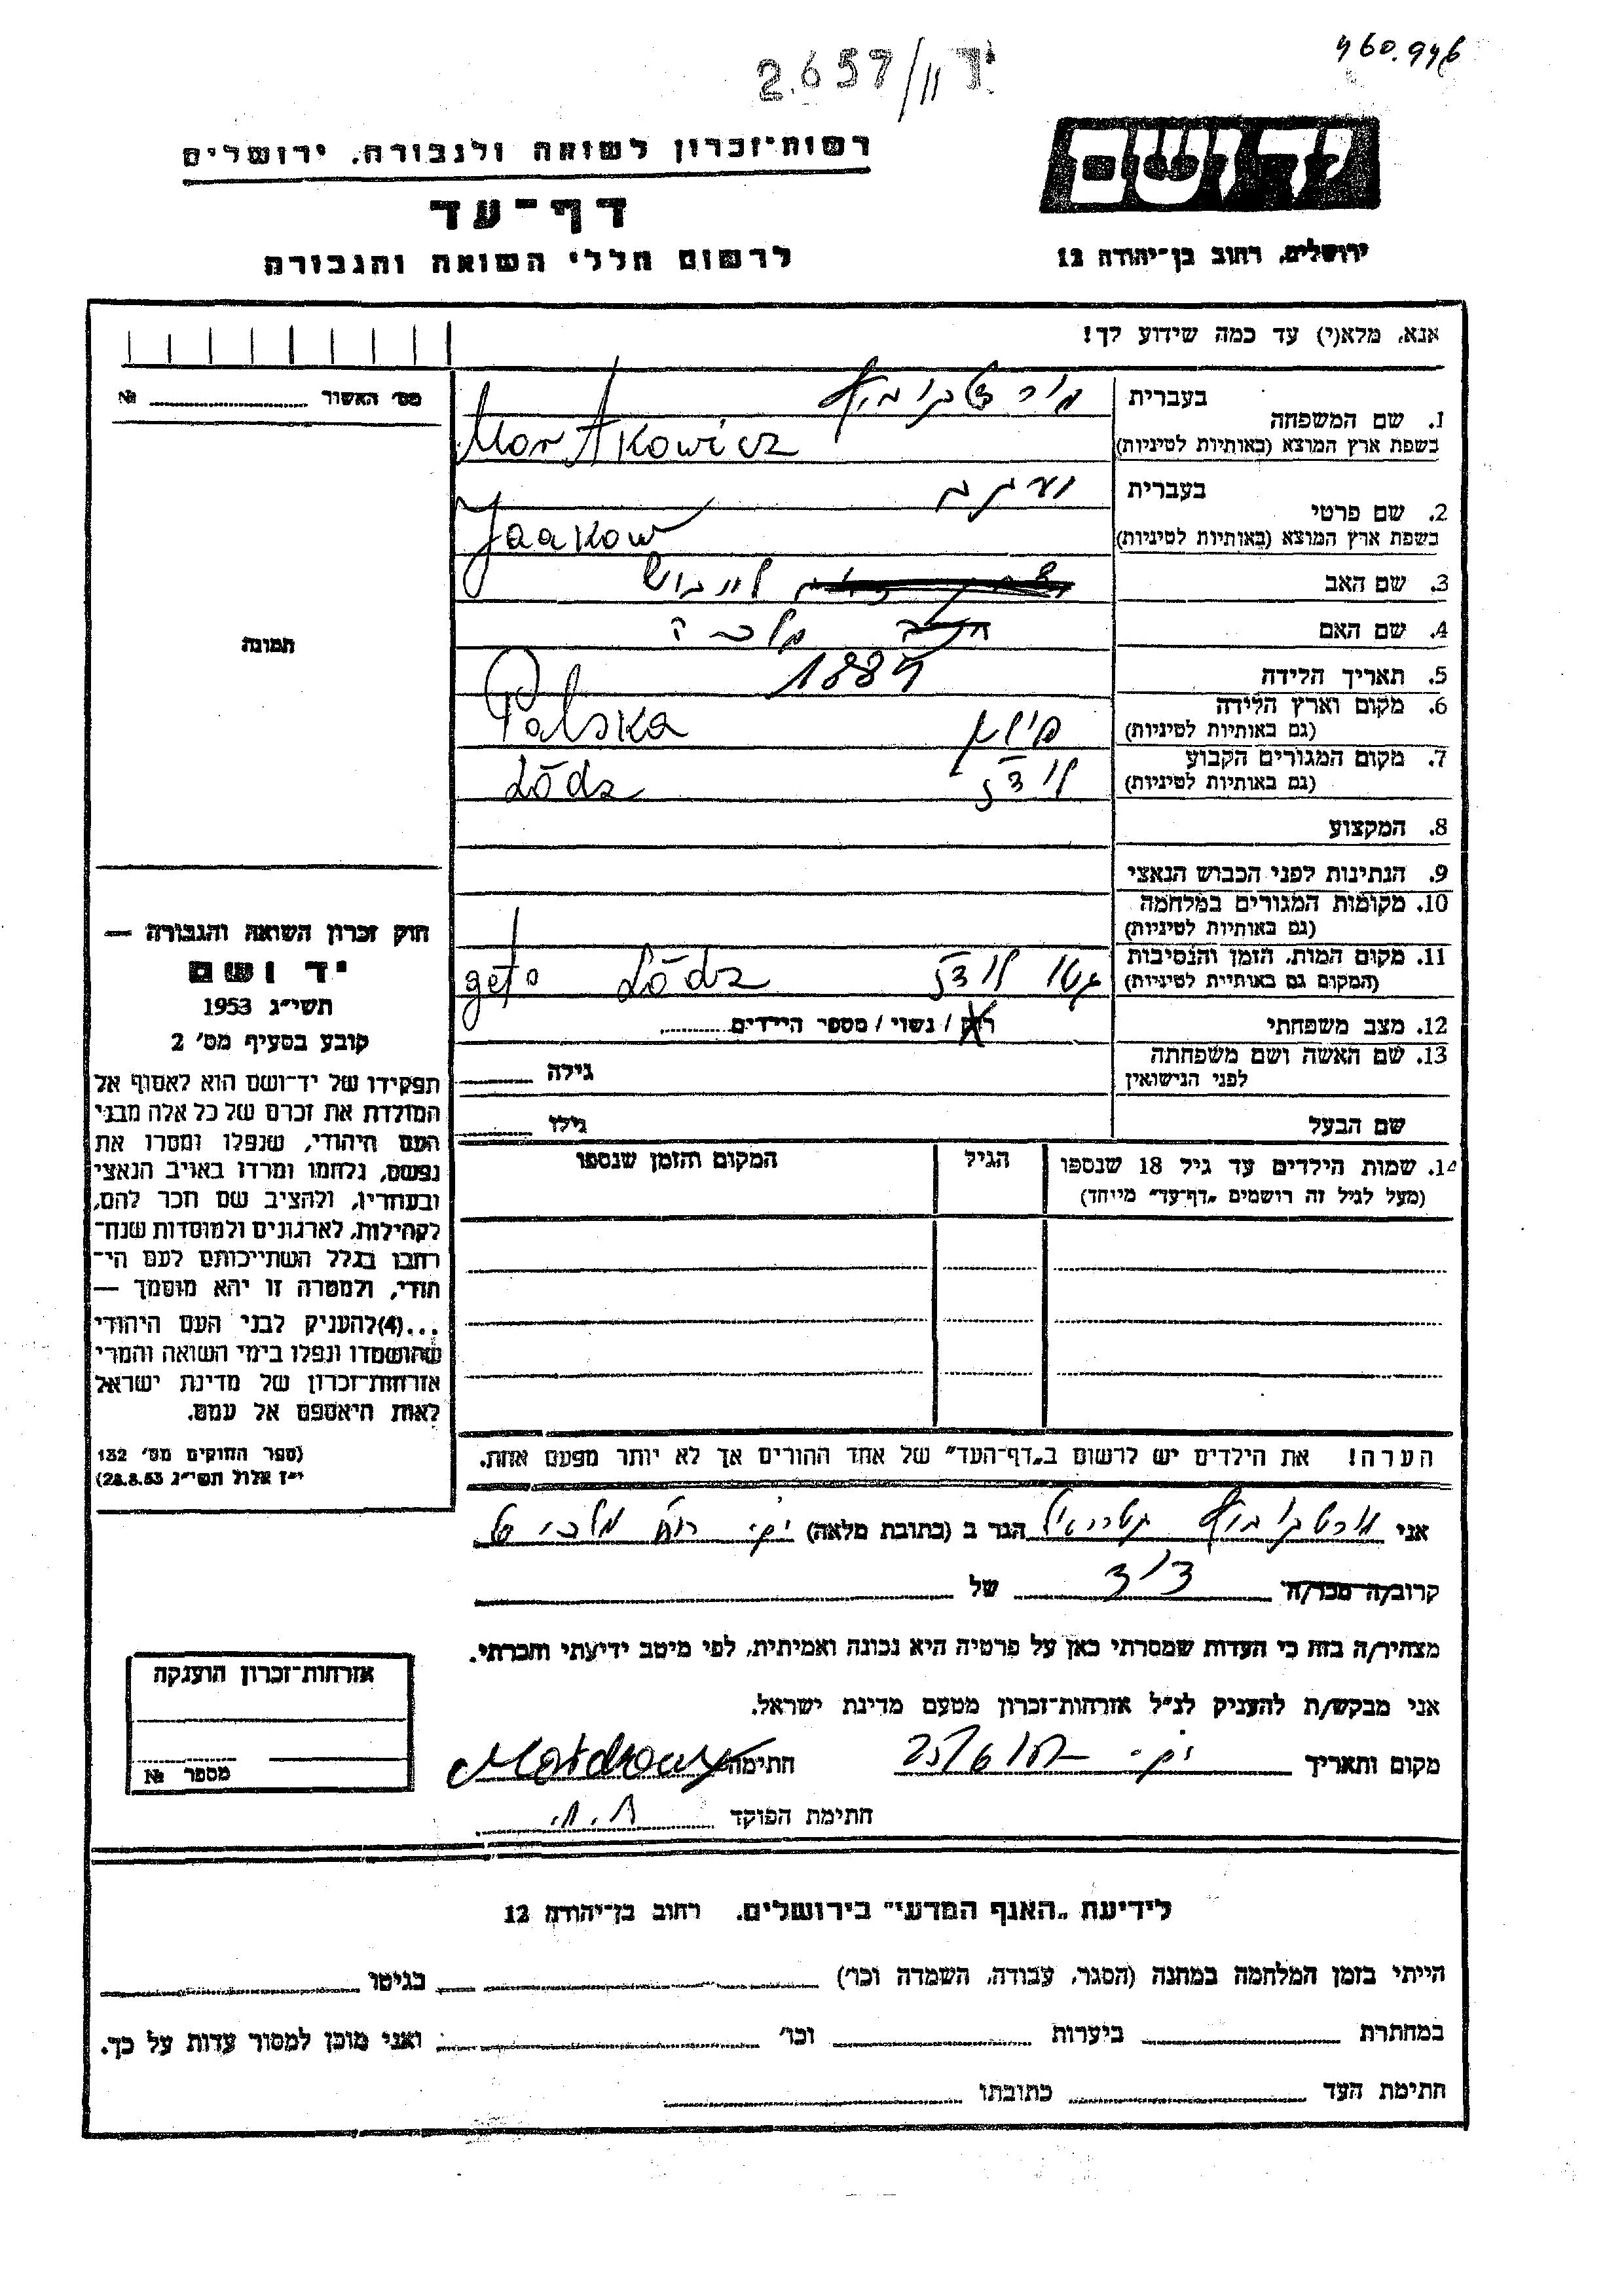 460.946
2.657/11 יד
רשות־זכרון לשואה ולגבורה. ירושלים
יד ושם
דף־עד
לרשום חללי השואה והגבורה
ירושלים, רחוב בן־יהודה 12
אנא, מלא(י) עד כמה שידוע לך!
מס׳ האשור ........ №
1. שם המשפחה
בעברית
בשפת ארץ המוצא (באותיות לטיניות)
Mortkowicz
2. שם פרטי
בעברית יעקב
בשפת ארץ המוצא (באותיות לטיניות)
Jaakow
3. שם האב לייבוש
4. שם האם מלכה
תמונה
5. תאריך הלידה
6. מקום וארץ הלידה
(גם באותיות לטיניות)
פולין Polska
7. מקום המגורים הקבוע
(גם באותיות לטיניות)
לודז Łódz
8. המקצוע
9. הנתינות לפני הכבוש הנאצי
10. מקומות המגורים במלחמה
(גם באותיות לטיניות)
11. מקום המות, הזמן והנסיבות
(המקום גם באותיות לטיניות)
גטו לודז geto Łódz
12. מצב משפחתי רווק / נשוי / מספר הילדים........
13. שם האשה ושם משפחתה
לפני הנישואין
גילה
שם הבעל גילו
14. שמות הילדים עד גיל 18 שנספו
(מעל לגיל זה רושמים „דף־עד״ מיוחד)
הגיל
המקום והזמן שנספו
חוק זכרון השואה והגבורה —
יד ושם
תשי״ג 1953
קובע בסעיף מס׳ 2
תפקידו של יד־ושם הוא לאסוף אל
המולדת את זכרם של כל אלה מבני
העם היהודי, שנפלו ומסרו את
נפשם, נלחמו ומרדו באויב הנאצי
ובעוזריו, ולהציב שם וזכר להם,
לקהילות, לארגונים ולמוסדות שנח־
רבו בגלל השתייכותם לעם הי־
הודי, ולמטרה זו יהא מוסמך —
...(4)להעניק לבני העם היהודי
שהושמדו ונפלו בימי השואה והמרי
אזרחות־זכרון של מדינת ישראל
לאות היאספם אל עמם.
(ספר החוקים מס׳ 132
י״ז אלול תשי״ג 28.8.53)
הערה! את הילדים יש לרשום ב„דף־העד״ של אחד ההורים אך לא יותר מפעם אחת.
אני הגר ב (כתובת מלאה)
קרוב/ה מכר/ה דוד של
מצהיר/ה בזה כי העדות שמסרתי כאן על פרטיה היא נכונה ואמיתית, לפי מיטב ידיעתי והכרתי.
אני מבקש/ת להעניק לנ״ל אזרחות־זכרון מטעם מדינת ישראל.
מקום ותאריך חתימה
חתימת הפוקד
אזרחות־זכרון הוענקה
מספר №
לידיעת „האגף המדעי״ בירושלים. רחוב בן־יהודה 12
הייתי בזמן המלחמה במחנה (הסגר, עבודה, השמדה וכו׳) בגיטו
במחתרת ביערות וכו׳ ואני מוכן למסור עדות על כך.
חתימת העד כתובתו